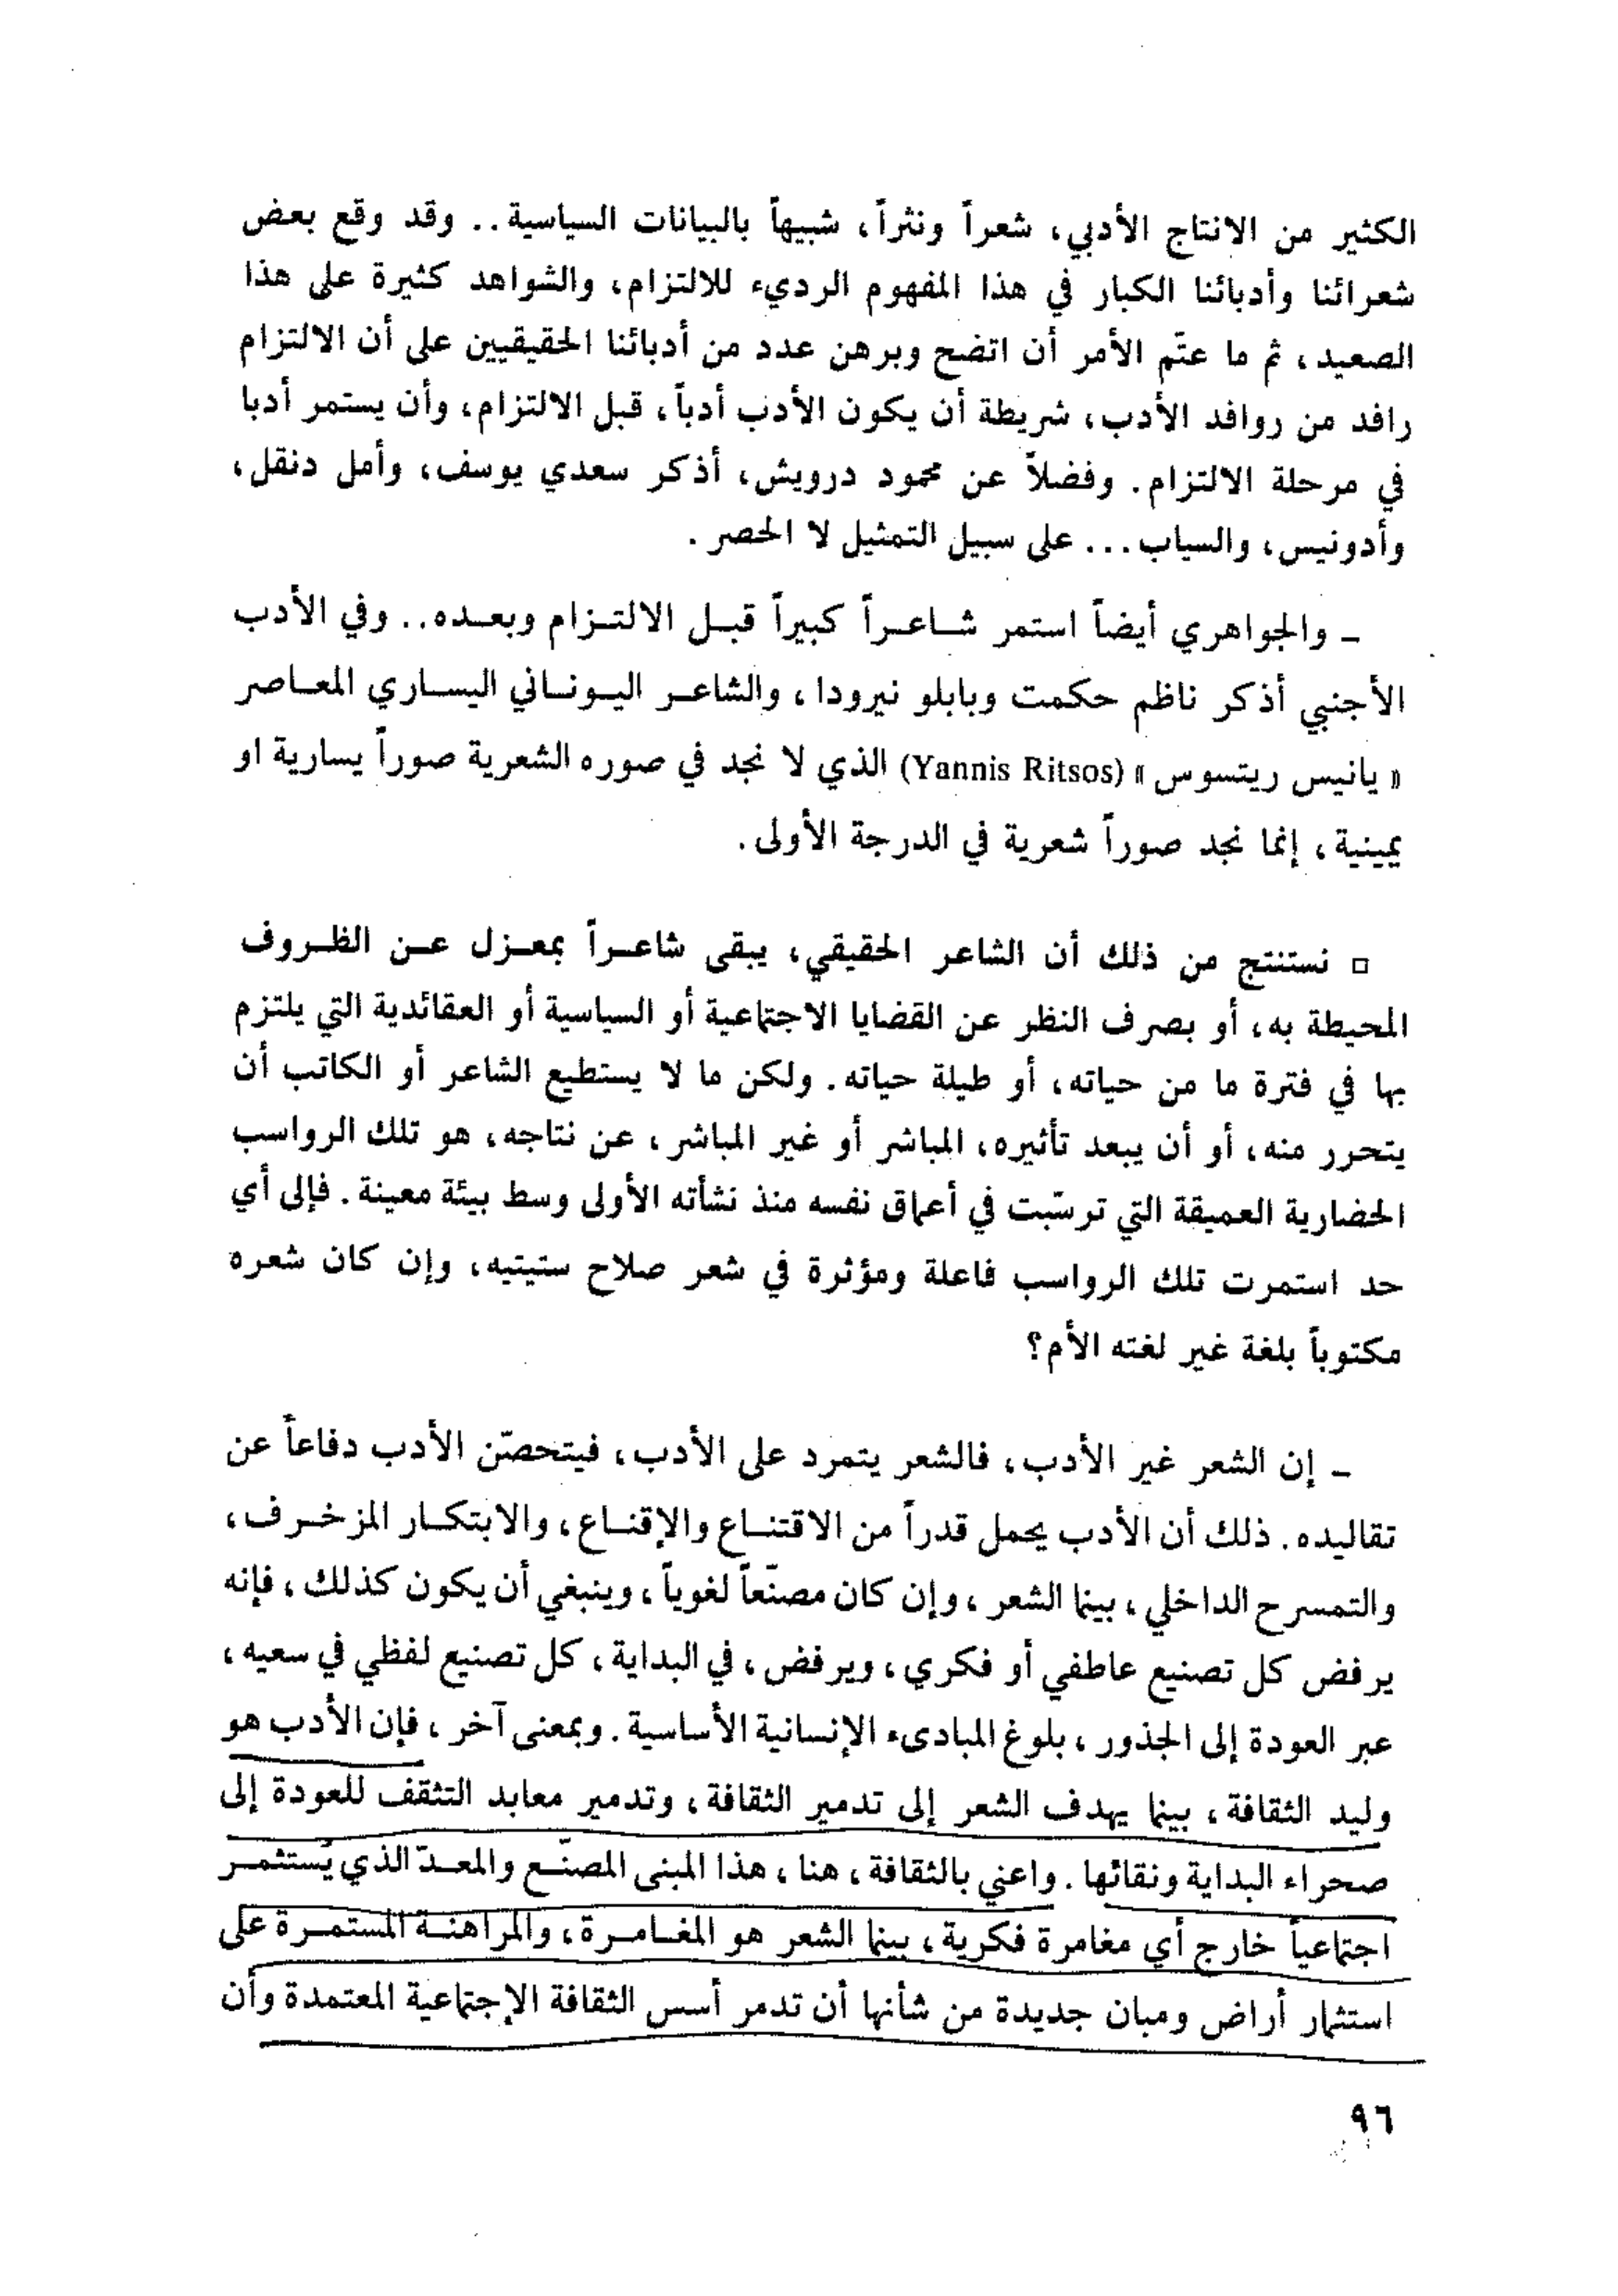 الكثير من الانتاج الأدبي، شعراً ونثراً، شبيهاً بالبيانات السياسية.. وقد وقع بعض
شعرائنا وأدبائنا الكبار في هذا المفهوم الرديء للالتزام، والشواهد كثيرة على هذا
الصعيد، ثم ما عتّم الأمر أن اتضح وبرهن عدد من أدبائنا الحقيقيين على أن الالتزام
رافد من روافد الأدب، شريطة أن يكون الأدب أدباً، قبل الالتزام، وأن يستمر أدبا
في مرحلة الالتزام. وفضلاً عن محمود درويش، أذكر سعدي يوسف، وأمل دنقل،
وأدونيس، والسياب... على سبيل التمثيل لا الحصر.
– والجواهري أيضاً استمر شاعراً كبيراً قبل الالتزام وبعده.. وفي الأدب
الأجنبي أذكر ناظم حكمت وبابلو نيرودا، والشاعر اليوناني اليساري المعاصر
« يانيس ريتسوس » (Yannis Ritsos) الذي لا نجد في صوره الشعرية صوراً يسارية او
يمينية، إنما نجد صوراً شعرية في الدرجة الأولى.
□ نستنتج من ذلك أن الشاعر الحقيقي، يبقى شاعراً بمعزل عن الظروف
المحيطة به، أو بصرف النظر عن القضايا الاجتماعية أو السياسية أو العقائدية التي يلتزم
بها في فترة ما من حياته، أو طيلة حياته. ولكن ما لا يستطيع الشاعر أو الكاتب أن
يتحرر منه، أو أن يبعد تأثيره، المباشر أو غير المباشر، عن نتاجه، هو تلك الرواسب
الحضارية العميقة التي ترسّبت في أعماق نفسه منذ نشأته الأولى وسط بيئة معينة. فإلى أي
حد استمرت تلك الرواسب فاعلة ومؤثرة في شعر صلاح ستيتيه، وإن كان شعره
مكتوباً بلغة غير لغته الأم؟
– إن الشعر غير الأدب، فالشعر يتمرد على الأدب، فيتحصّن الأدب دفاعاً عن
تقاليده. ذلك أن الأدب يحمل قدراً من الاقتناع والإقناع، والابتكار المزخرف،
والتمسرح الداخلي، بينما الشعر، وإن كان مصنّعاً لغوياً، وينبغي أن يكون كذلك، فإنه
يرفض كل تصنيع عاطفي أو فكري، ويرفض، في البداية، كل تصنيع لفظي في سعيه،
عبر العودة إلى الجذور، بلوغ المبادىء الإنسانية الأساسية. وبمعنى آخر، فإن الأدب هو
وليد الثقافة، بينما يهدف الشعر إلى تدمير الثقافة، وتدمير معابد التثقف للعودة إلى
صحراء البداية ونقائها. واعني بالثقافة، هنا، هذا المبنى المصنّع والمعدّ الذي يُستثمر
اجتماعياً خارج أي مغامرة فكرية، بينما الشعر هو المغامرة، والمراهنة المستمرة على
استثمار أراض ومبان جديدة من شأنها أن تدمر أسس الثقافة الإجتماعية المعتمدة وأن
٩٦